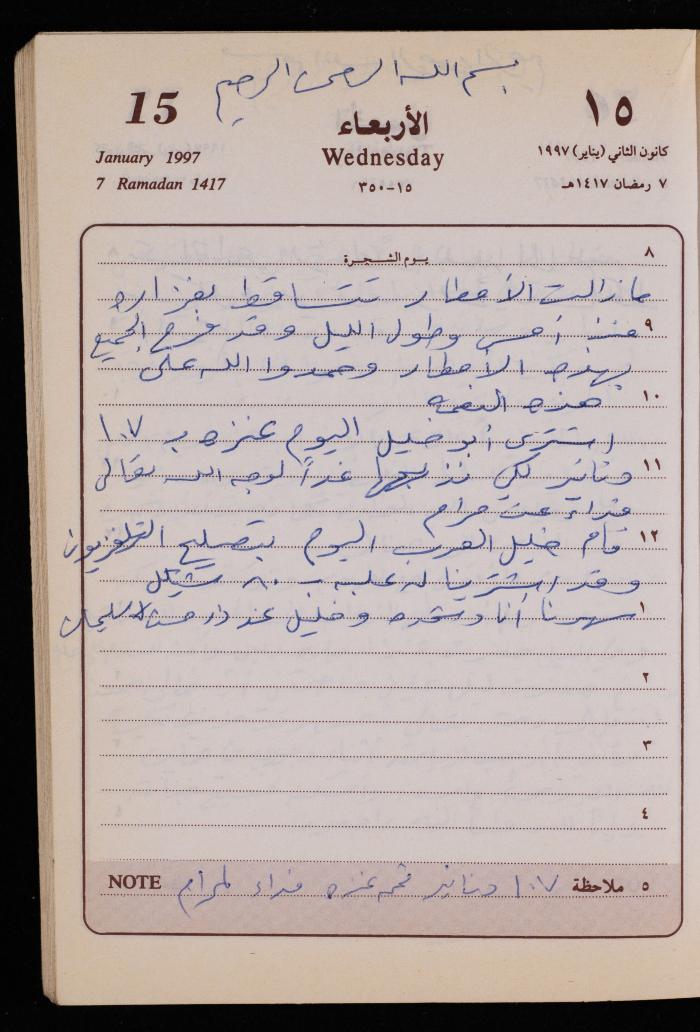 بسم الله الرحمن الرحيم
15
الأربعاء
١٥
January 1997
Wednesday
كانون الثاني (يناير) ١٩٩٧
7 Ramadan 1417
١٥-٣٥٠
٧ رمضان ١٤١٧هـ
٨ يوم الشجرة
ما زالت الأمطار تتساقط بغزاره
٩ منذ أمس وطول الليل وقد فرح الجميع
بهذه الأمطار وحمدوا الله على
١٠ هذه النعمه
اشترى أبو خليل اليوم عنزه ب ١٠٧
١١ دنانير لكي نذبحها غداً لوجه الله تعالى
فداء عن مرام
١٢ قام خليل العرب اليوم بتصليح التلفزيون
وقد اشترينا له علبه ب ٨٠ شيكل
١ سهرنا أنا وسعده وخليل عند دار
٢
٣
٤
٥ ملاحظة ١٠٧ دنانير ثمن عنزه فداء لمرام NOTE